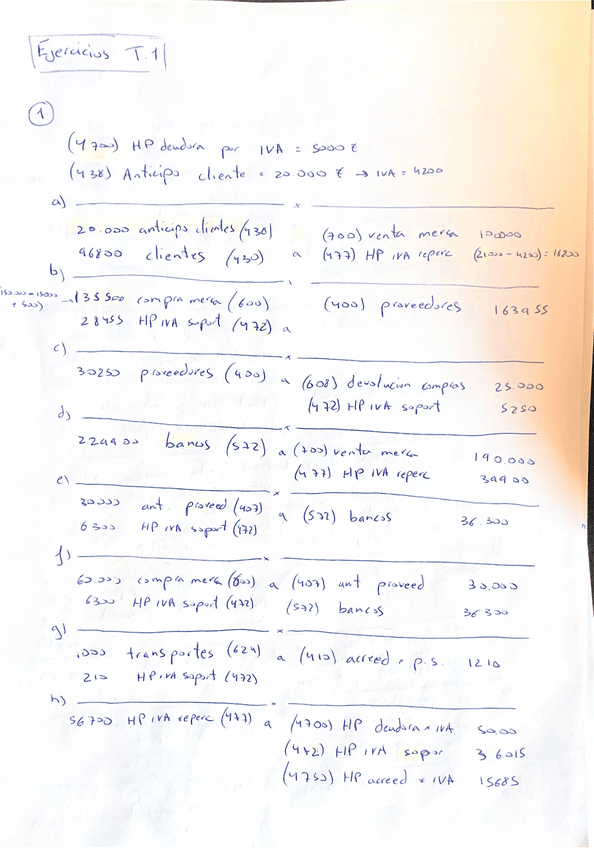 Ejercicios T.1
1
(4700) HP deudora por IVA = 5000 €
(438) Anticipo cliente = 20.000 € → IVA = 4200
a)
20.000 anticipo clientes (438) (700) venta merca 100000
96800 clientes (430) a (477) HP IVA reperc (21000 - 4200) = 16800
b)
(150.000 - 15000 + 500) → 135500 compra merca (600) (400) proveedores 163955
28455 HP IVA soport (472) a
c)
30250 proveedores (400) a (608) devolucion compras 25.000
(472) HP IVA soport 5250
d)
229900 bancos (572) a (700) venta merca 190.000
(477) HP IVA reperc 39900
e)
30.000 ant. proveed (407) a (572) bancos 36.300
6300 HP IVA soport (472)
f)
60.000 compra merca (600) a (407) ant proveed 30,000
6300 HP IVA soport (472) (572) bancos 36300
g)
.000 transportes (624) a (410) acreed. p.s. 1210
210 HP IVA soport (472)
h)
56700 HP IVA reperc (477) a (4700) HP deudora x IVA 5000
(472) HP IVA sopor 36015
(4750) HP acreed x IVA 15685